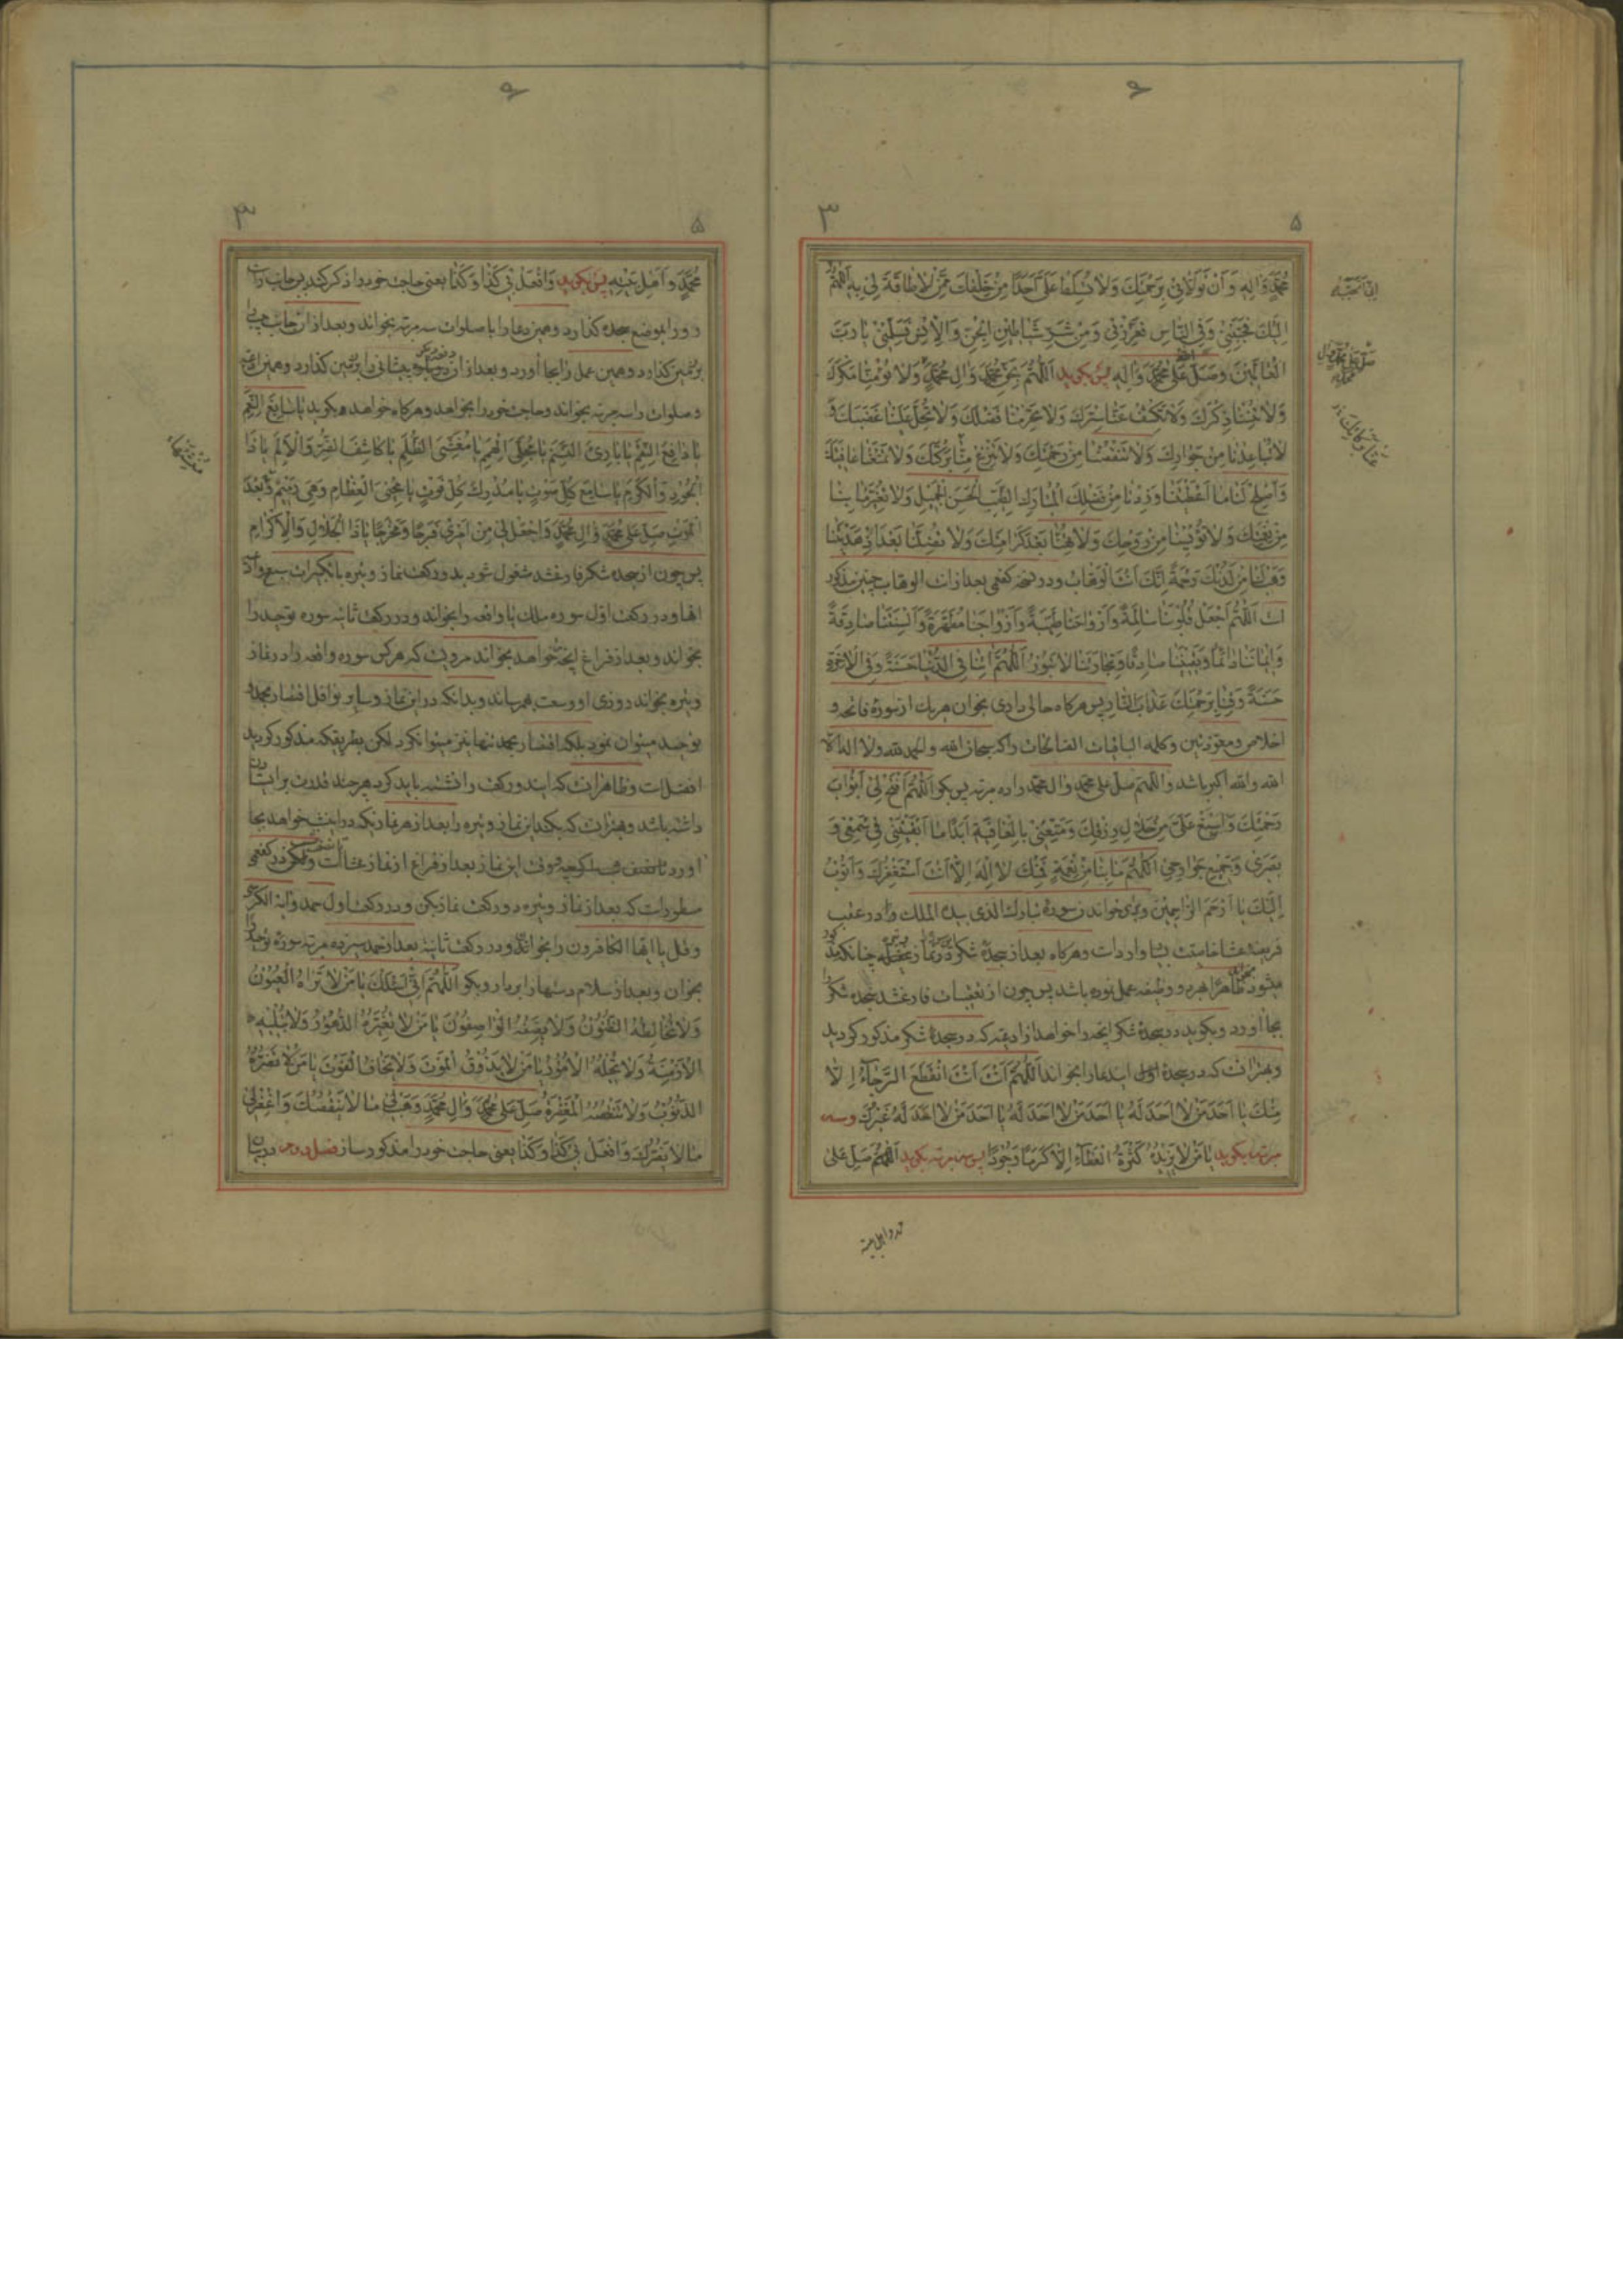 محمد واله وان تولانی برحمتک ولا تسلط علی احدا من خلقک ممن لا طاقة لی به اللهم
الیک فحببنی وفی الناس فعززنی ومن شر شیاطین الجن والانس فسلمنی یا رب
العالمین وصل علی محمد واله پس بکوید اللهم بحق محمد وال محمد ولا تؤمنا مکرک
ولا تنسنا ذکرک ولا تکشف عنا سترک ولا تحرمنا فضلک ولا تحل علینا غضبک و
لا تباعدنا من جوارک ولا تنقصنا من رحمتک ولا تنزع منا برکتک ولا تمنعنا عافیتک
واصلح لنا ما اعطیتنا وزدنا من فضلک المبارک الطیب الحسن الجمیل ولا تغیر ما بنا
من نعمتک ولا تؤیسنا من روحک ولا تهنا بعد کرامتک ولا تضلنا بعد اذ هدیتنا
وهب لنا من لدنک رحمة انک انت الوهاب ودر نسخه کفعمی بعد از انت الوهاب چنین مذکور
است اللهم اجعل قلوبنا سالمة وارواحنا طیبة وازواجنا مطهرة والسنتنا صادقة
وایماننا دائما ویقیننا صادقا وتجارتنا لا تبور اللهم اتنا فی الدنیا حسنة وفی الاخرة
حسنة وقنا برحمتک عذاب النار پس هرکاه حالی داری بخوان هر یک از سوره فاتحه و
اخلاص ومعوذتین وکلمه الباقیات الصالحات را که سبحان الله والحمد لله ولا اله الا
الله والله اکبر باشد واللهم صل علی محمد وال محمد را ده مرتبه پس بکو اللهم افتح لی ابواب
رحمتک واسبغ علی من حلال رزقک ومتعنی بالعافیة ابدا ما ابقیتنی فی سمعی و
بصری وجمیع جوارحی اللهم ما بنا من نعمة فمنک لا اله الا انت استغفرک واتوب
الیک یا ارحم الراحمین وبرای خواندن سوره تبارک الذی بیده الملک را در عقب
فریضه عشا خاصیت بسیار وارد است وهرکاه بعد از سجده شکر
میشود ظاهرا هر دو وظیفه عمل نموده باشد پس چون از تعقیبات فارغ شد سجده شکر
بجا اورد وبکوید در سجده شکر انچه را خواهد از ادعیه که در سجده شکر مذکور کردید
وبهتر انست که در سجده اول ایندعا را بخواند اللهم انت انت انقطع الرجاء الا
منک یا احد من لا احد له یا احد من لا احد له یا احد من لا احد له غیرک وسه
مرتبه بکوید یا من لا یزیده کثرة العطاء الا کرما وجودا پس سه مرتبه بکوید اللهم صل علی
محمد واهل بیته پس بکوید وافعل بی کذا وکذا یعنی حاجت خود را ذکر کند پس جانب راست
رو را بموضع سجده کذارد وهمین دعا را با صلوات سه مرتبه بخواند وبعد از ان جانب چپ را
بر زمین کذارد وهمین عمل را بجا اورد وبعد از ان پیشانی را بر زمین کذارد وهمین دعا
وصلوات را سه مرتبه بخواند وحاجت خود را بخواهد وهرکاه خواهد بکوید یا سابغ النعم
یا دافع النقم یا بارئ النسم یا مجلی الهمم یا مغشی الظلم یا کاشف الضر والالم یا ذا
الجود والکرم یا سامع کل صوت یا مدرک کل فوت یا محیی العظام وهی رمیم بعد
الموت صل علی محمد وال محمد واجعل لی من امری فرجا ومخرجا یا ذا الجلال والاکرام
پس چون از سجده شکر فارغ شد مشغول شود بدو رکعت نماز وتیره با تکبیرات سبع وادعیه
انها ودر رکعت اول سوره ملک یا واقعه را بخواند ودر رکعت ثانیه سوره توحید را
بخواند وبعد از فراغ انچه خواهد بخواند مرویست که هر کس سوره واقعه را در نماز
وتیره بخواند روزی او وسعت بهم رساند وبدانکه در این نماز وسایر نوافل اقتصار بحمد و
توحید میتوان نمود بلکه اقتصار بحمد تنها نیز میتوان کرد لکن بطریقیکه مذکور کردید
افضلست وظاهر انست که ایندو رکعت را نشسته باید کرد هر چند قدرت بر ایستادن
داشته باشد وبهتر انست که بکند این نماز وتیره را بعد از هر نمازیکه در این شب خواهد بجا
اورد وقت این نماز بعد از فراغ از نماز عشا است در کفعمی
مسطور است که بعد از نماز وتیره دو رکعت نماز بکن ودر رکعت اول حمد وایة الکرسی
وقل یا ایها الکافرون را بخوان ودر رکعت ثانیه بعد از حمد سیزده مرتبه سوره توحید را
بخوان وبعد از سلام دستها را بردار وبکو اللهم انی اسئلک یا من لا تراه العیون
ولا تخالطه الظنون ولا یصفه الواصفون یا من لا تغیره الدهور ولا تبلیه
الازمنة ولا تحیله الامور یا من لا یذوق الموت ولا یخاف الفوت یا من لا تضره
الذنوب ولا تنقصه المغفرة صل علی محمد وال محمد وهب لی ما لا ینقصک واغفر لی
ما لا یضرک وافعل بی کذا وکذا یعنی حاجت خود را مذکور ساز فصل دوم در بیان